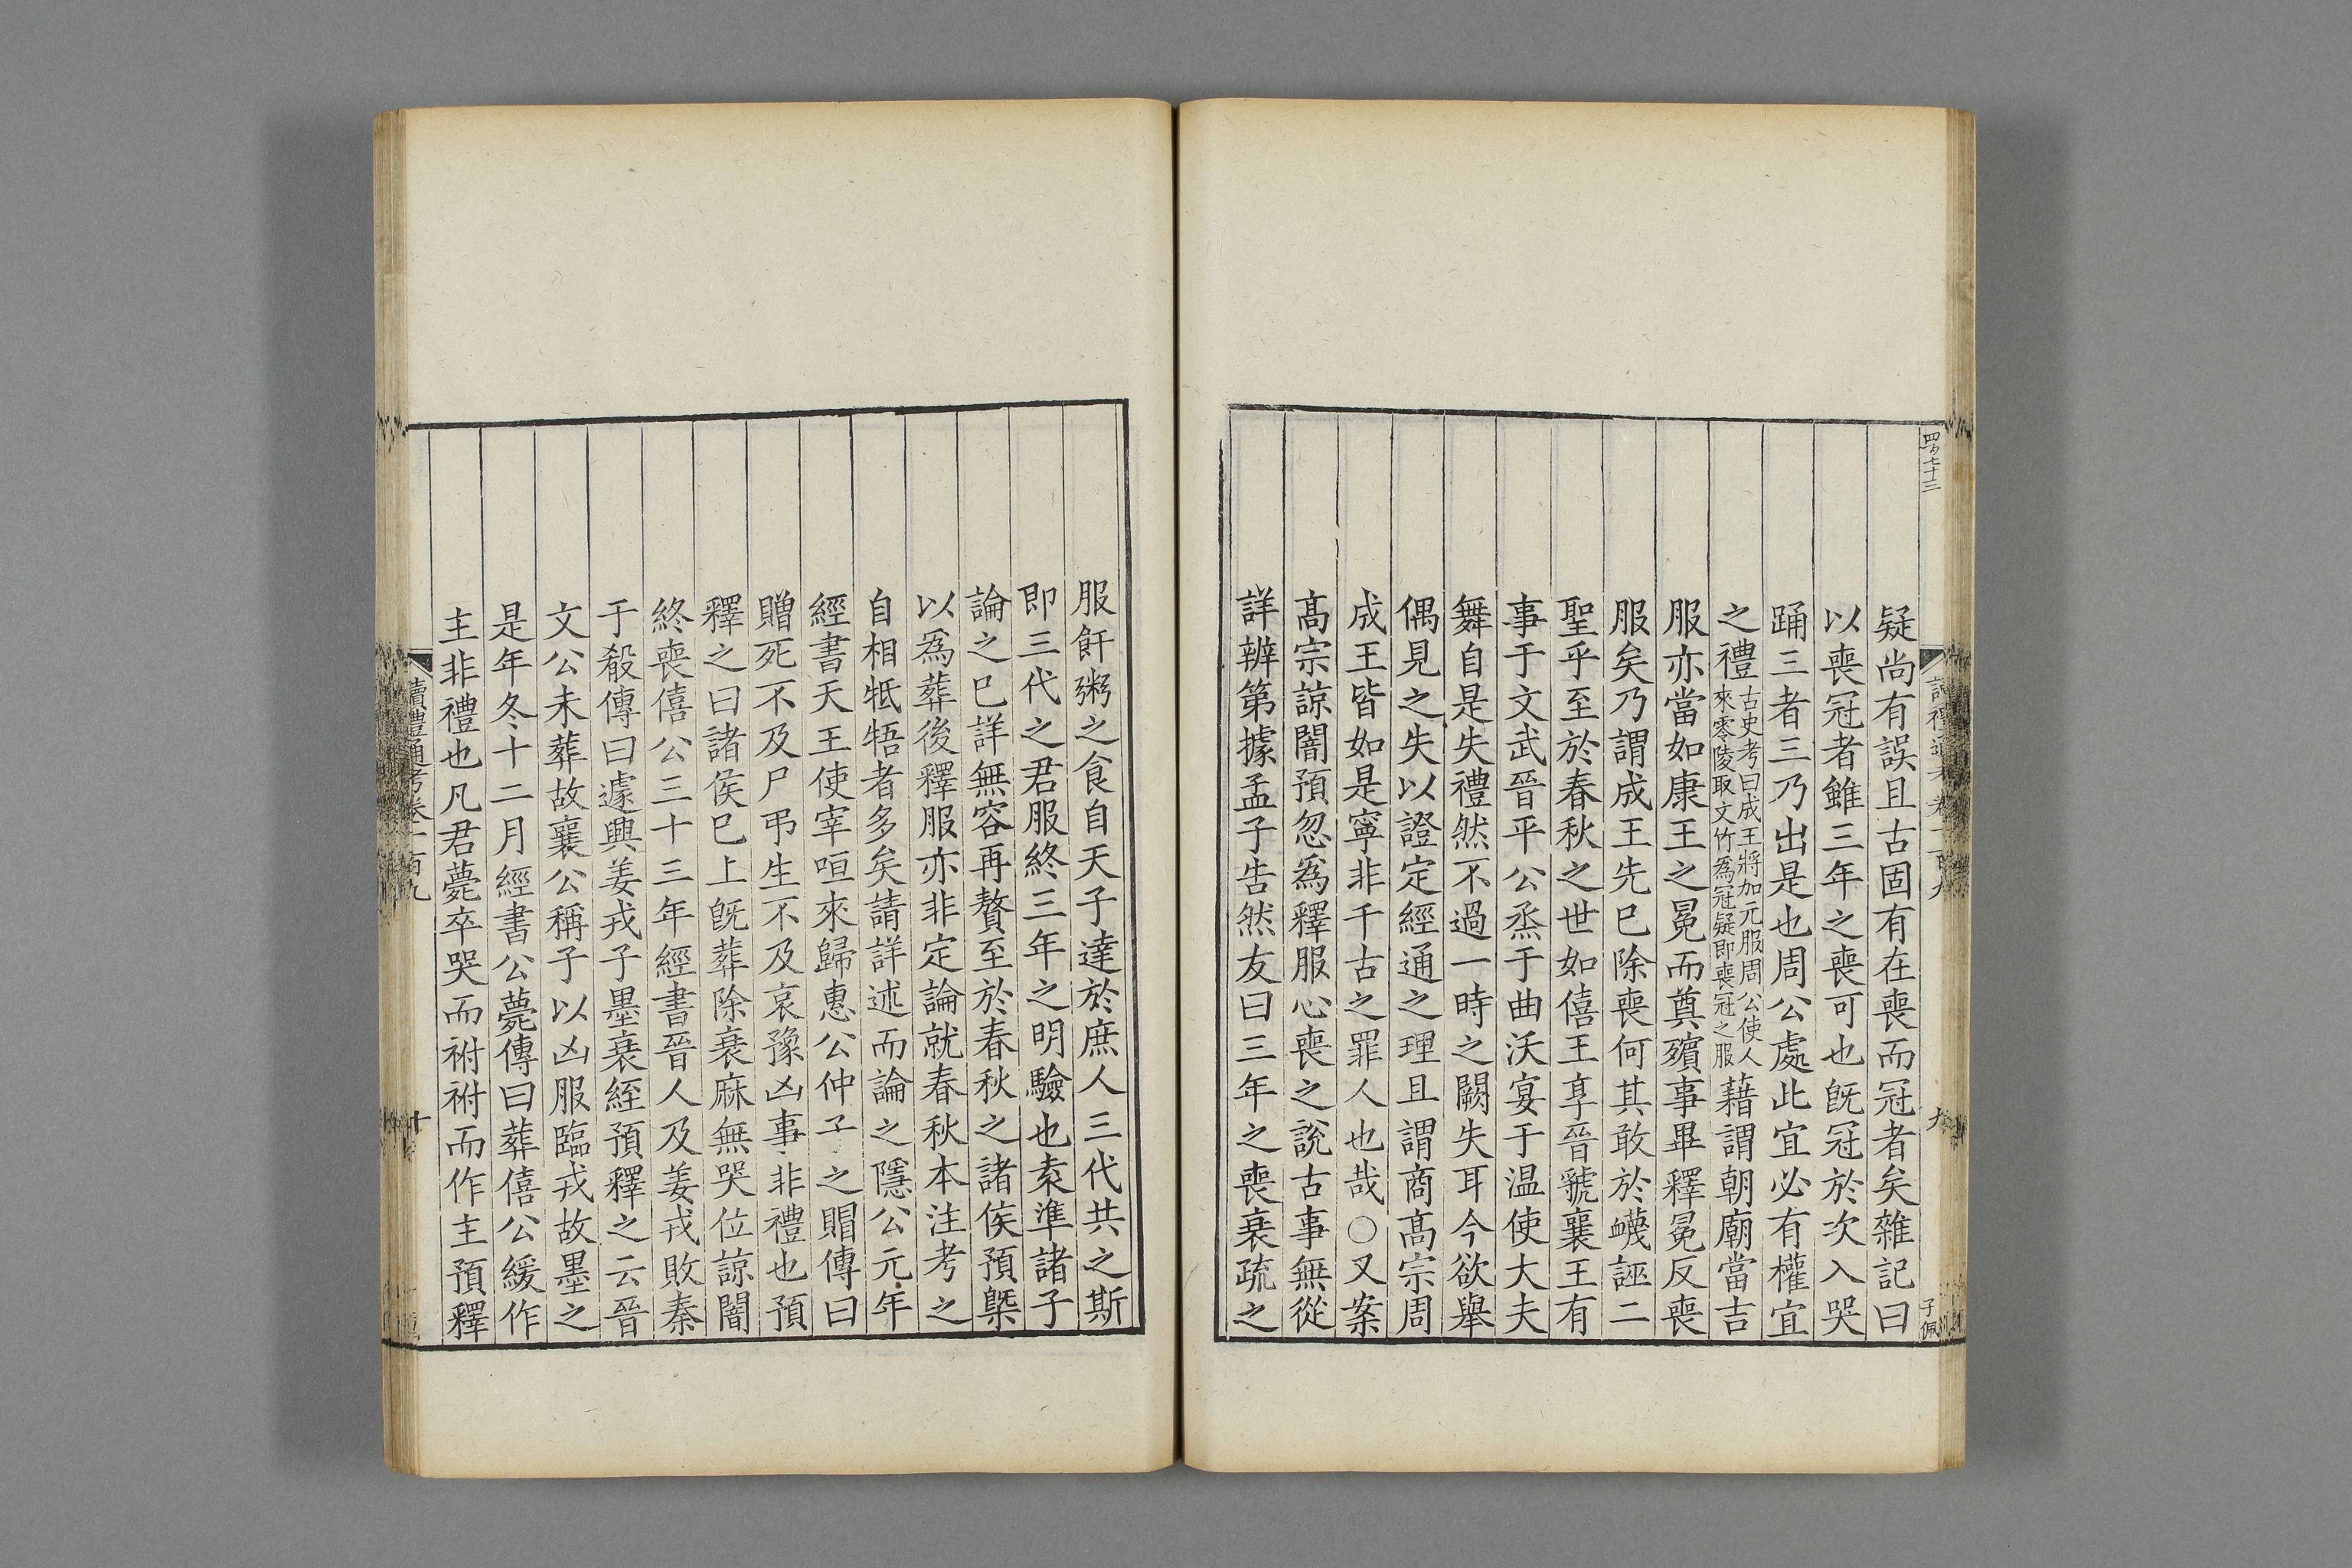 四百七十三
讀禮通考卷一百九
九
子佩
疑尚有誤且古固有在喪而冠者矣雜記曰
以喪冠者雖三年之喪可也旣冠於次入哭
踊三者三乃出是也周公處此宜必有權宜
之禮古史考曰成王將加元服周公使人來零陵取文竹為冠疑即喪冠之服藉謂朝廟當吉
服亦當如康王之冕而奠殯事畢釋冕反喪
服矣乃謂成王先已除喪何其敢於衊誣二
聖乎至於春秋之世如僖王享晉虢襄王有
事于文武晉平公烝于曲沃宴于温使大夫
舞自是失禮然不過一時之闕失耳今欲舉
偶見之失以證定經通之理且謂商高宗周
成王皆如是寧非千古之罪人也哉○又案
高宗諒闇預忽為釋服心喪之說古事無從
詳辨第據孟子告然友曰三年之喪衰疏之
服飦粥之食自天子達於庶人三代共之斯
即三代之君服終三年之明驗也袁準諸子
論之已詳無容再贅至於春秋之諸侯預槩
以為葬後釋服亦非定論就春秋本注考之
自相牴牾者多矣請詳述而論之隱公元年
經書天王使宰咺來歸惠公仲子之賵傳曰
贈死不及尸弔生不及哀豫凶事非禮也預
釋之曰諸侯已上旣葬除衰麻無哭位諒闇
終喪僖公三十三年經書晉人及姜戎敗秦
于殽傳曰遽興姜戎子墨衰絰預釋之云晉
文公未葬故襄公稱子以凶服臨戎故墨之
是年冬十二月經書公薨傳曰葬僖公緩作
主非禮也凡君薨卒哭而祔祔而作主預釋
讀禮通考卷一百九
十